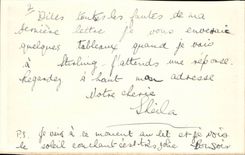 2
Dites toutes les fautes de ma
dernière lettre je vous enverrai
quelques tableaux quand je vais
à Sterling. J'attends une réponse.
Regardez à haut mon adresse
Votre chérie
Sheila
P.S. je suis à ce moment au lit et je vois
le soleil couchant c'est très jolie Bonsoir